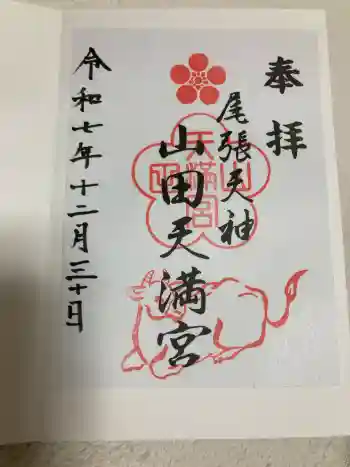 奉拝
尾張天神
山田天満宮
令和七年十二月三十日